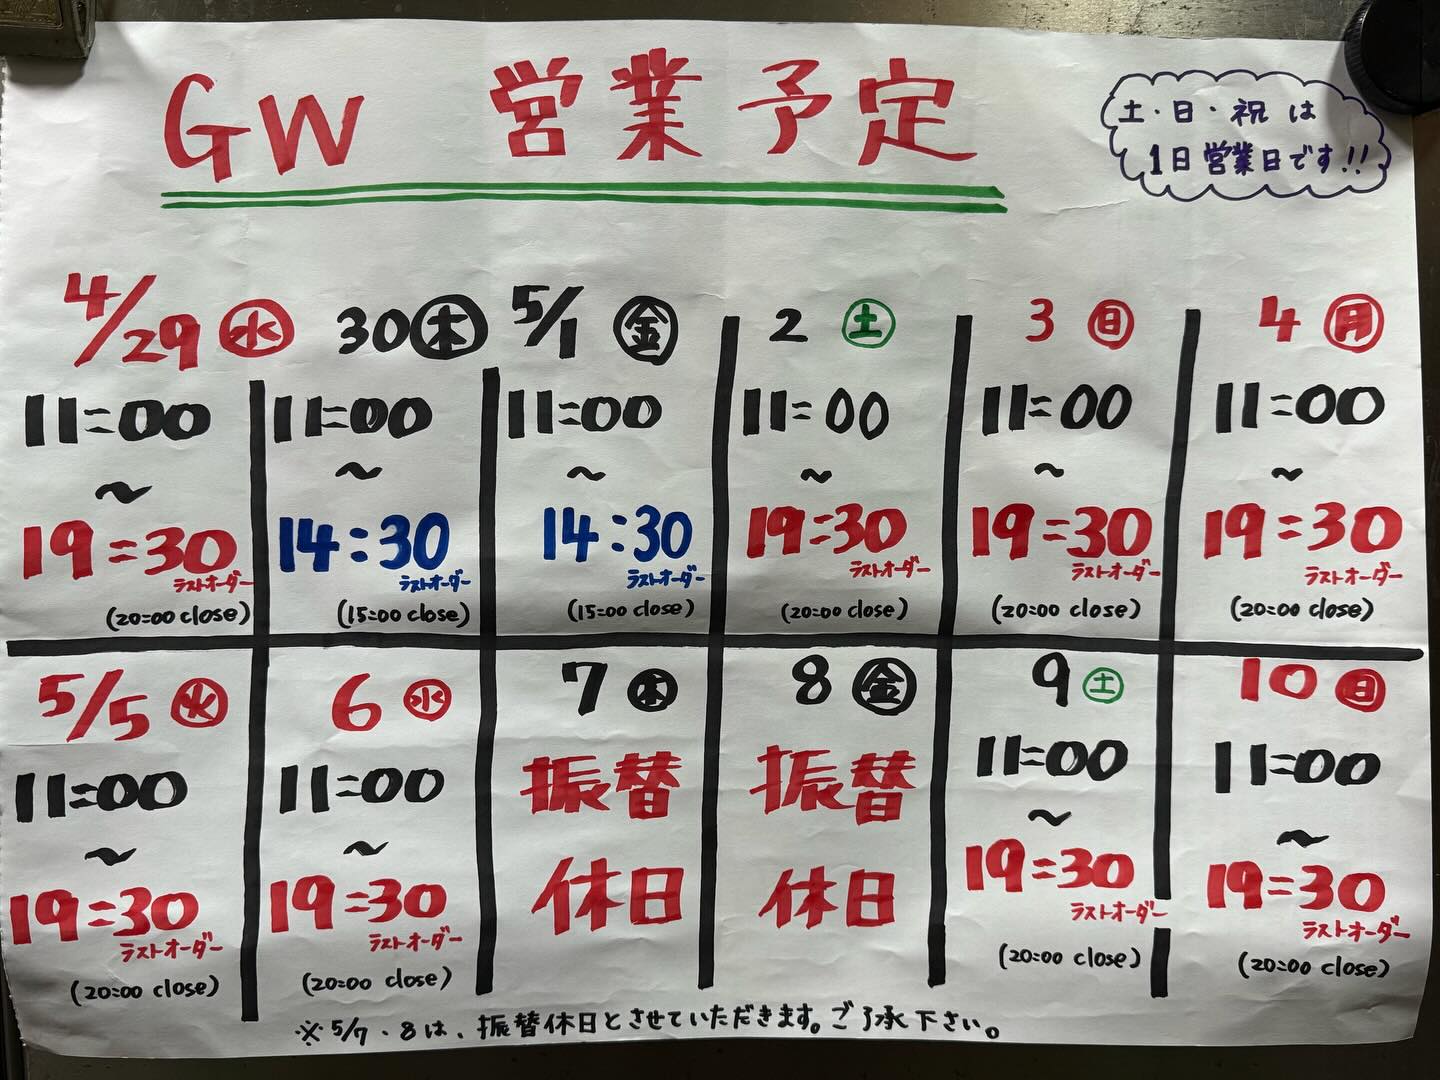 GW 営業予定
土・日・祝は
1日営業日です!!
4/29 ㊌
11:00
~
19:30
ラストオーダー
(20:00 close)
30 ㊍
11:00
~
14:30
ラストオーダー
(15:00 close)
5/1 ㊎
11:00
~
14:30
ラストオーダー
(15:00 close)
2 ㊏
11:00
~
19:30
ラストオーダー
(20:00 close)
3 ㊐
11:00
~
19:30
ラストオーダー
(20:00 close)
4 ㊊
11:00
~
19:30
ラストオーダー
(20:00 close)
5/5 ㊋
11:00
~
19:30
ラストオーダー
(20:00 close)
6 ㊌
11:00
~
19:30
ラストオーダー
(20:00 close)
7 ㊍
振替
休日
8 ㊎
振替
休日
9 ㊏
11:00
~
19:30
ラストオーダー
(20:00 close)
10 ㊐
11:00
~
19:30
ラストオーダー
(20:00 close)
※5/7・8は、振替休日とさせていただきます。ご了承下さい。